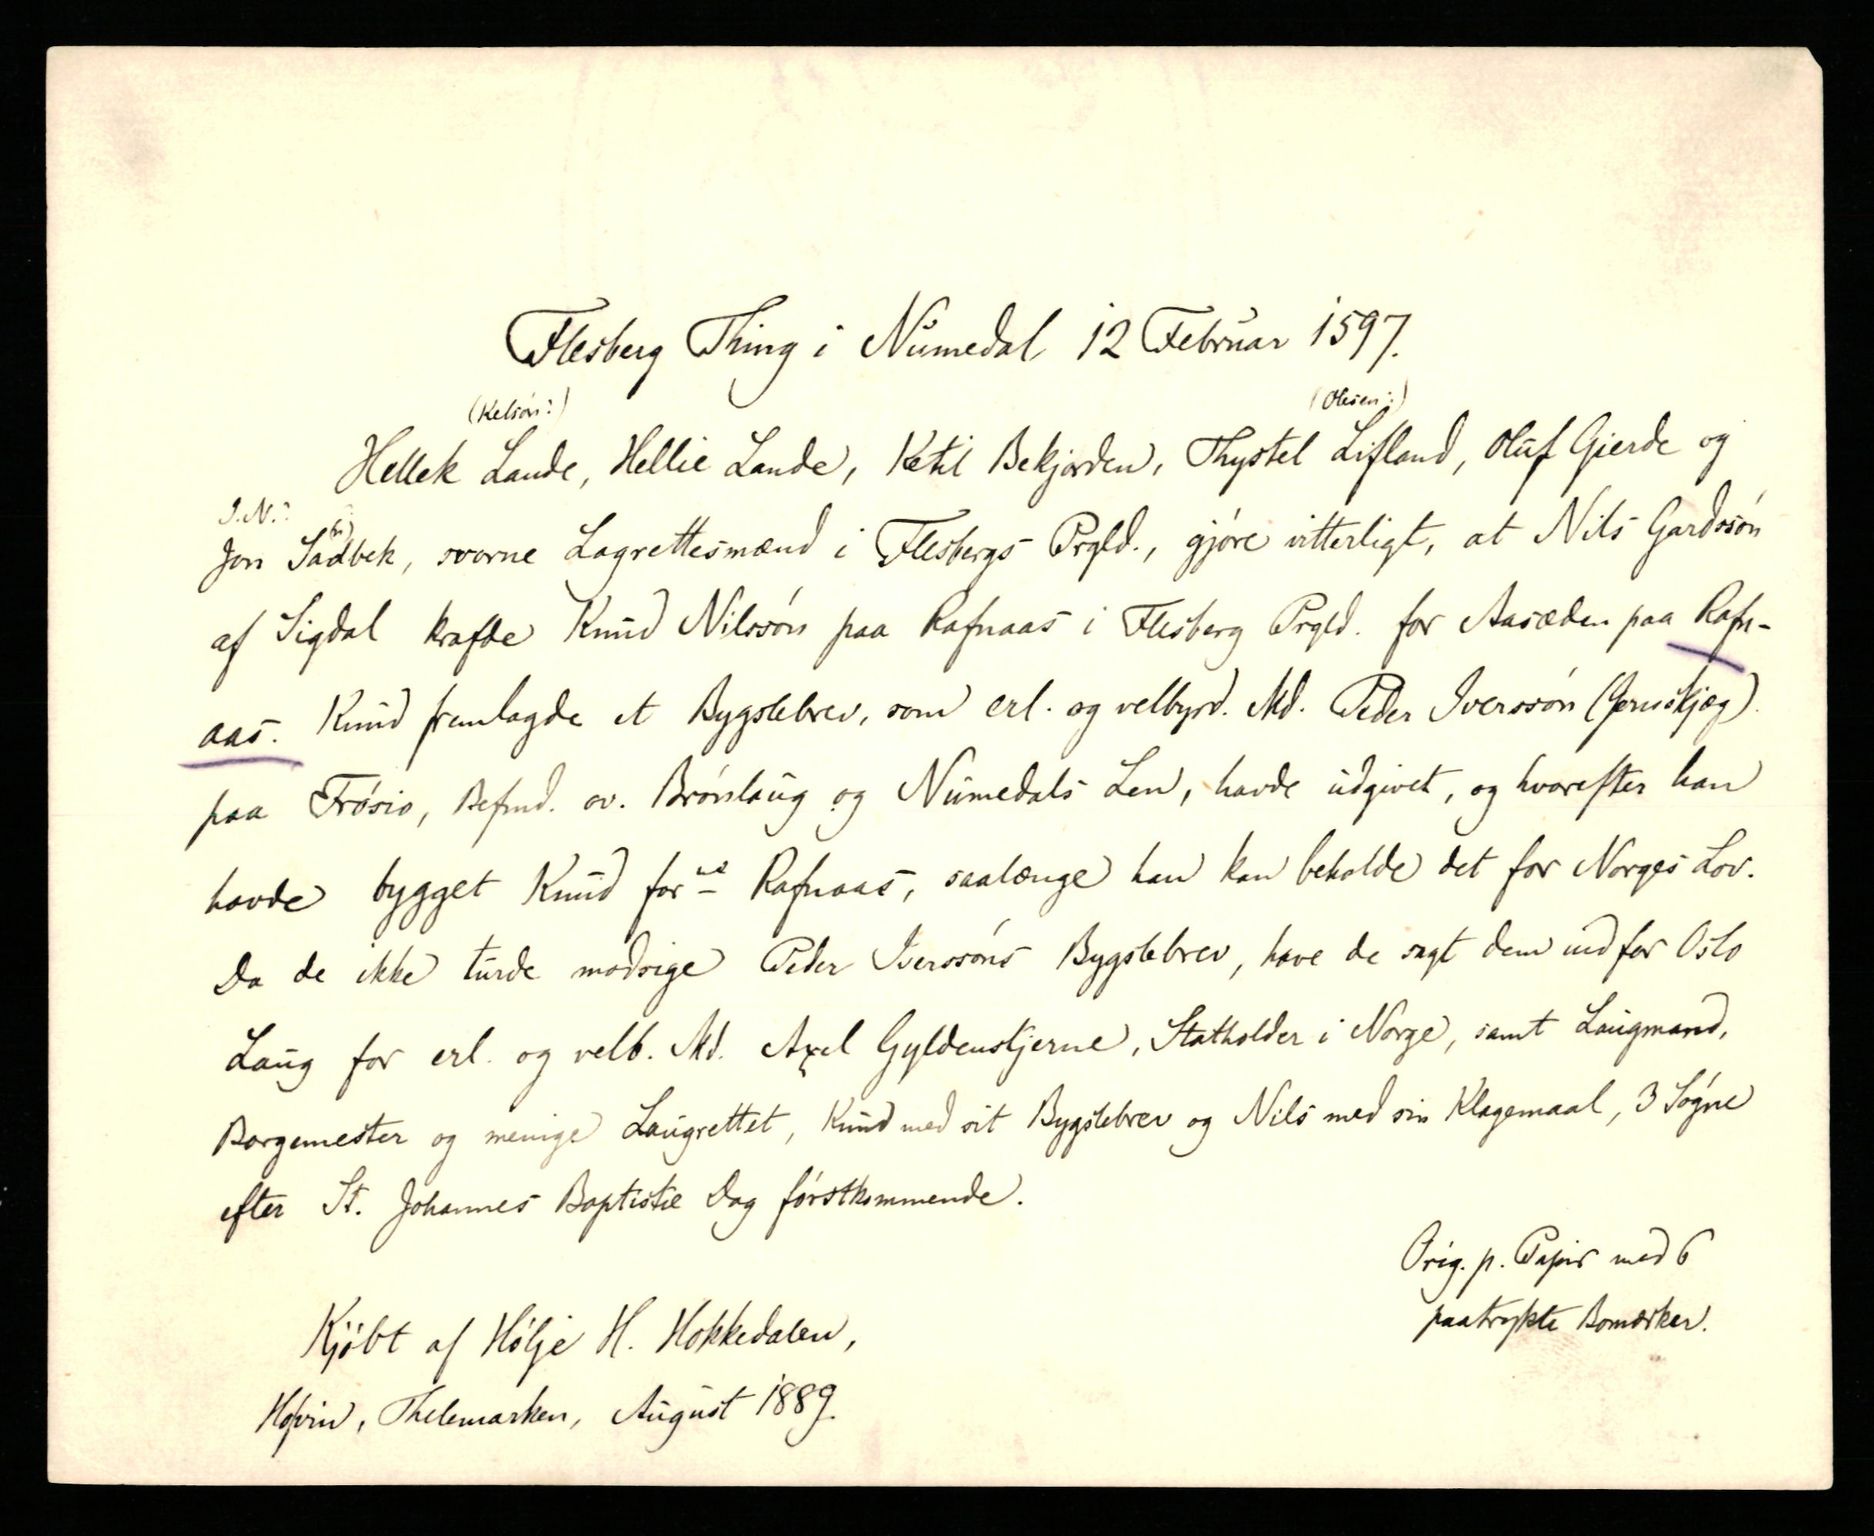 Flesberg Thing i Numedal 12 Februar 1597.
(Kelsøn:) (Olesen:)
Hellek Lande, Hellie Lande, Ketil Bekjorden, Thystel Lifland, Oluf Gierde og
J.N.:
Jon Sadbek, svorne Lagrettesmænd i Flesbergs Prgld., gjøre vitterligt, at Nils Gardssøn
af Sigdal krafde Knud Nilssøn paa Rafnaas i Flesberg Prgld. for Aasæden paa Rafn-
aas. Knud fremlagde et Bygslebrev, som erl. og velbyrd. Md. Peder Iverssøn (Jernskjæg)
paa Frøsio, Befmd. ov. Brønlaug og Numedals Len, havde udgivet, og hvorefter han
havde bygget Knud for ne Rafnaas, saalænge han kan beholde det for Norges Lov.
Da de ikke turde modsige Peder Iverssøns Bygslebrev, have de sagt dem ind for Oslo
Laug for erl. og velb. Md. Axel Gyldenstjerne, Statholder i Norge, samt Laugmand,
Borgemester og menige Laugrettet, Knud med sit Bygslebrev og Nils med sin Klagemaal, 3 Søgne
efter St. Johannes Baptistæ Dag førstkommende.
Orig. p. Papir med 6
paatrykte Bomærker.
Kjøbt af Hølje H. Hokkedalen,
Hovin, Thelemarken, August 1889.